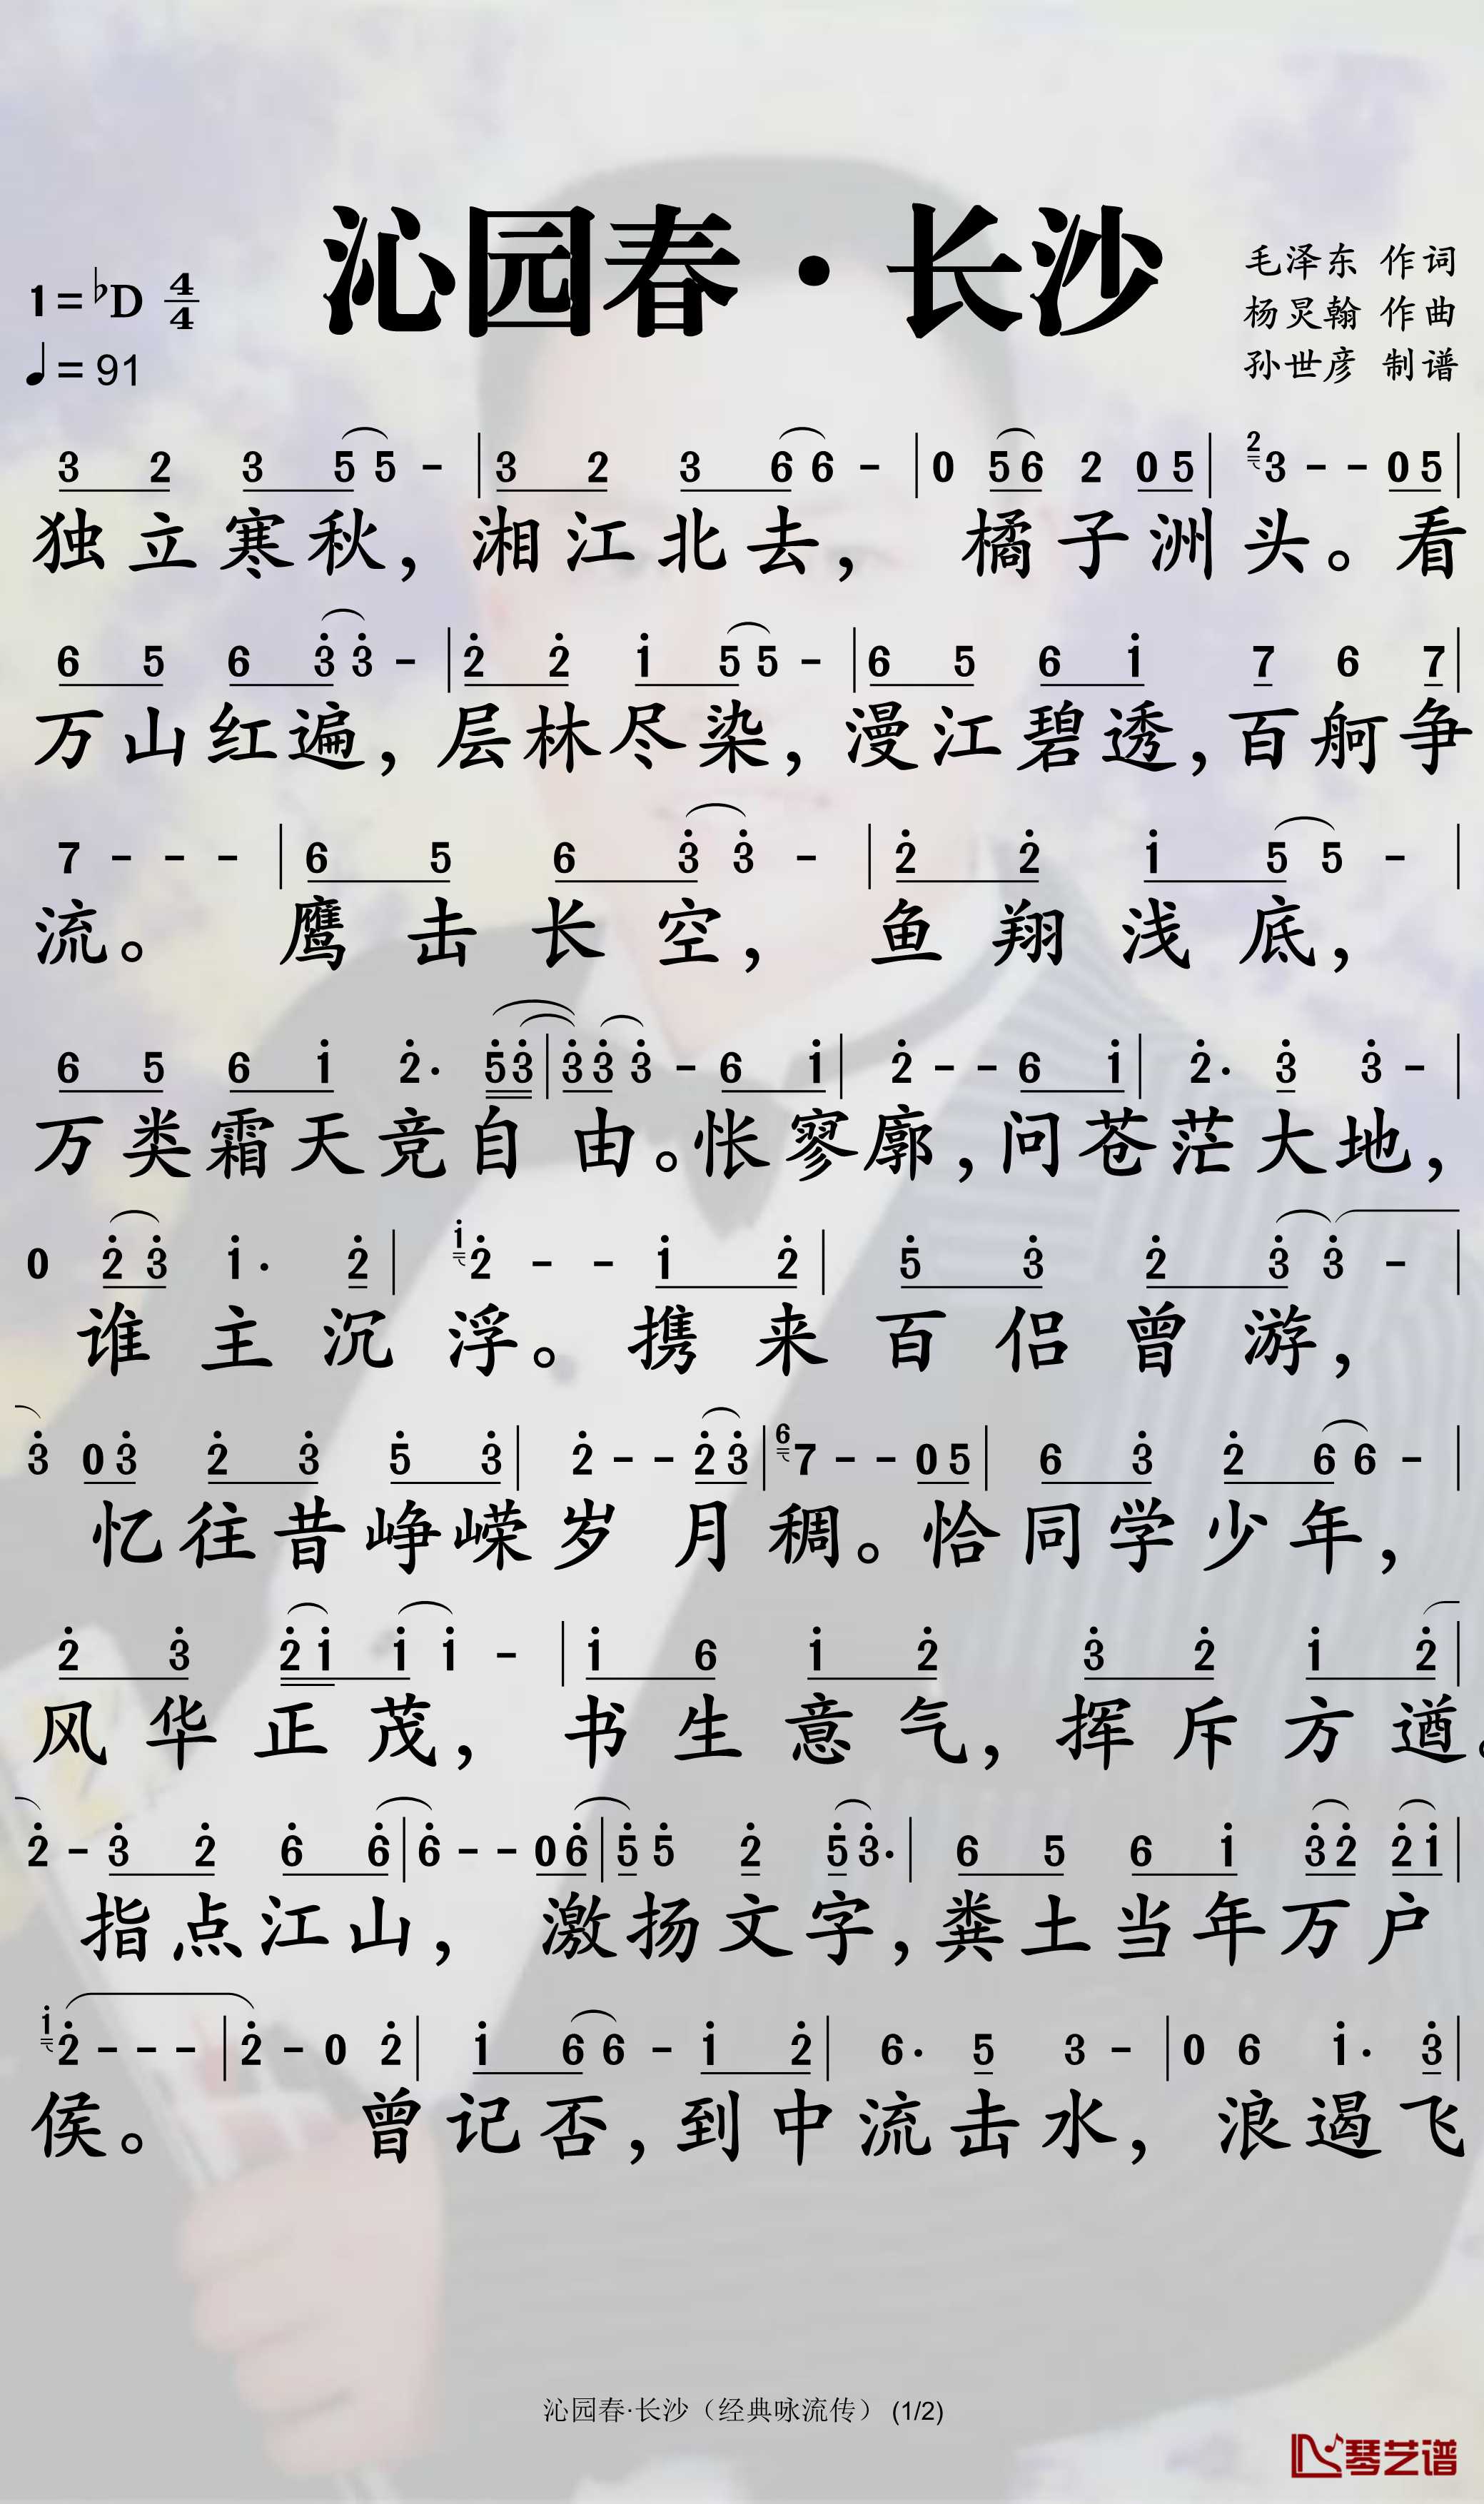 沁园春·长沙
1=♭D 4/4
♩=91
毛泽东 作词
杨炅翰 作曲
孙世彦 制谱
3 2 3 5 5 - | 3 2 3 6 6 - | 0 5 6 2 0 5 | 2 3 - - 0 5 |
独立寒秋，湘江北去，橘子洲头。看
6 5 6 3 3 - | 2 2 1 5 5 - | 6 5 6 1 7 6 7 |
万山红遍，层林尽染，漫江碧透，百舸争
7 - - - | 6 5 6 3 3 - | 2 2 1 5 5 - |
流。鹰击长空，鱼翔浅底，
6 5 6 1 2· 5 3 | 3 3 3 - 6 1 | 2 - - 6 1 | 2· 3 3 - |
万类霜天竞自由。怅寥廓，问苍茫大地，
0 2 3 1· 2 | 1 2 - - 1 2 | 5 3 2 3 3 - |
谁主沉浮。携来百侣曾游，
3 0 3 2 3 5 3 | 2 - - 2 3 | 6 7 - - 0 5 | 6 3 2 6 6 - |
忆往昔峥嵘岁月稠。恰同学少年，
2 3 2 1 1 1 - | 1 6 1 2 3 2 1 2 |
风华正茂，书生意气，挥斥方遒。
2 - 3 2 6 6 | 6 - - 0 6 | 5 5 2 5 3· | 6 5 6 1 3 2 2 1 |
指点江山，激扬文字，粪土当年万户
1 2 - - - | 2 - 0 2 | 1 6 6 - 1 2 | 6· 5 3 - | 0 6 1· 3 |
侯。曾记否，到中流击水，浪遏飞
沁园春·长沙（经典咏流传） (1/2)
琴艺谱